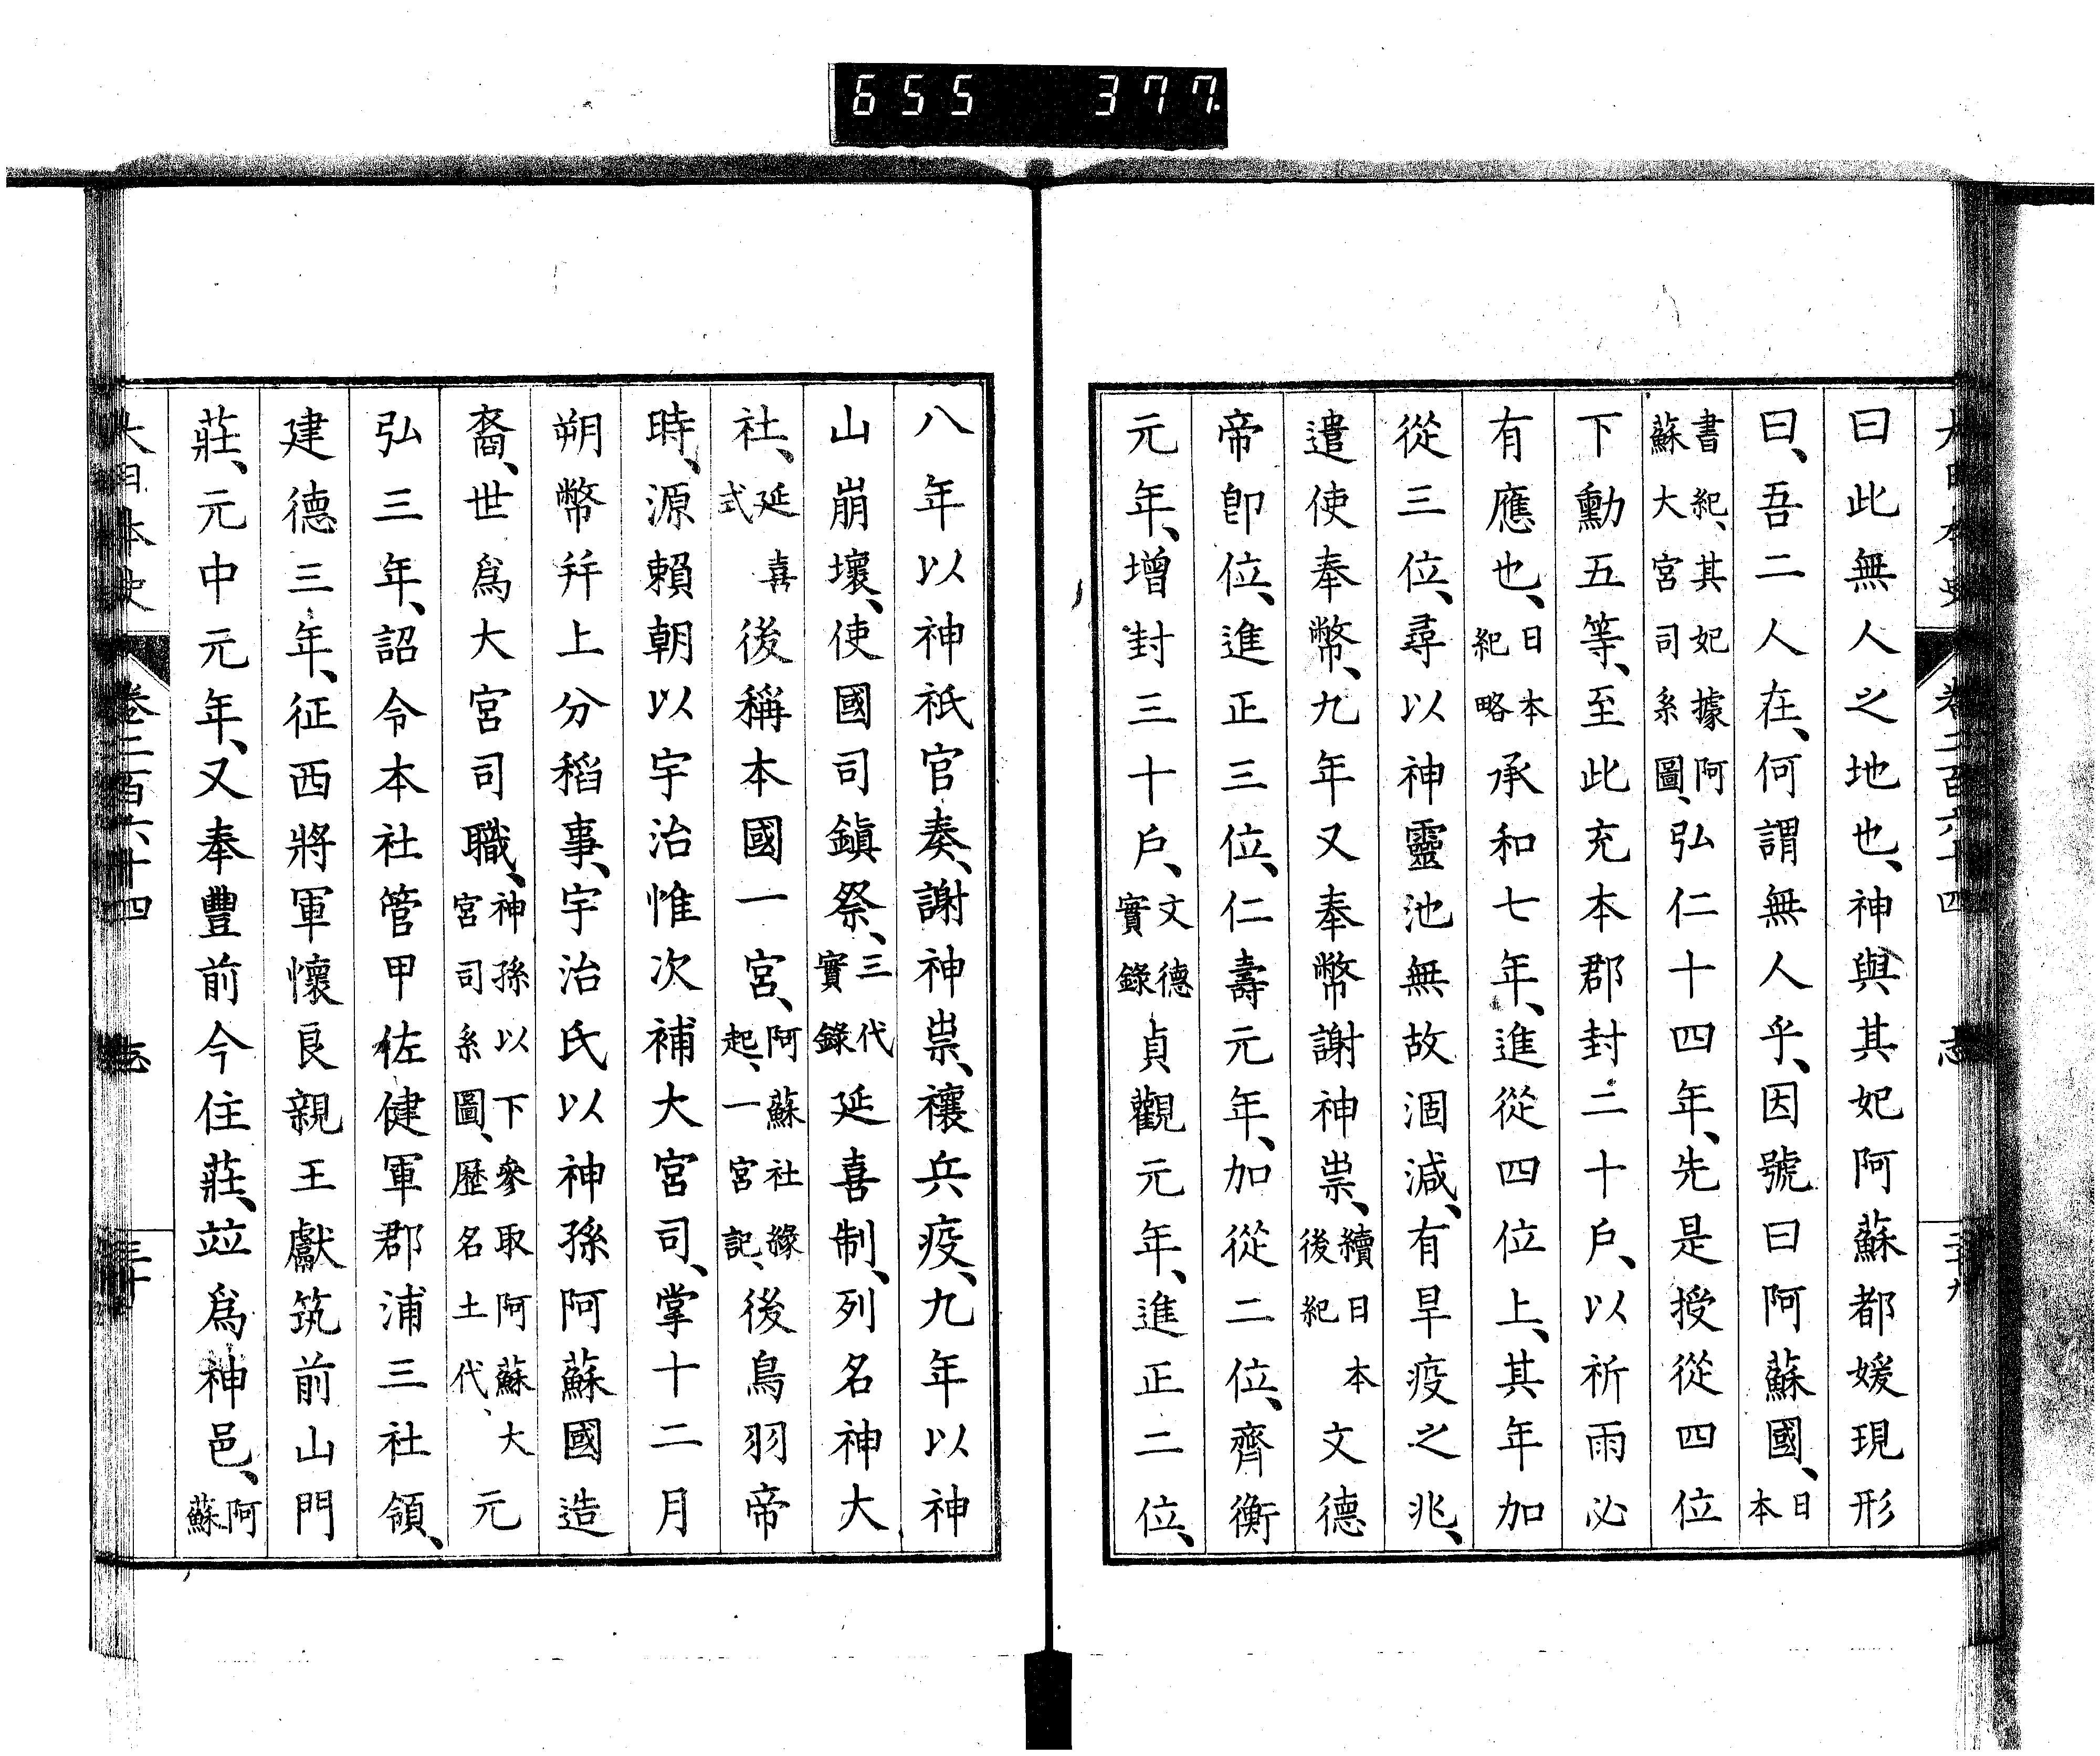 655 377.
大日本史 卷二百六十四 志 二十九
曰此無人之地也、神與其妃阿蘇都媛現形
曰、吾二人在、何謂無人乎、因號曰阿蘇國、日本
書紀、其妃據阿蘇大宮司系圖、弘仁十四年、先是授從四位
下勳五等、至此充本郡封二十戶、以祈雨必
有應也、日本紀略承和七年、進從四位上、其年加
從三位、尋以神靈池無故涸減、有旱疫之兆、
遣使奉幣、九年又奉幣謝神祟、續日本後紀文德
帝卽位、進正三位、仁壽元年、加從二位、齊衡
元年、增封三十戶、文德實錄貞觀元年、進正二位、
八年以神祇官奏、謝神祟、禳兵疫、九年以神
山崩壞、使國司鎭祭、三代實錄延喜制、列名神大
社、延喜式後稱本國一宮、阿蘇社緣起、一宮記、後鳥羽帝
時、源賴朝以宇治惟次補大宮司、掌十二月
朔幣幷上分稻事、宇治氏以神孫阿蘇國造
裔、世爲大宮司職、神孫以下參取阿蘇大宮司系圖、歷名土代、元
弘三年、詔令本社管甲佐健軍郡浦三社領、
建德三年、征西將軍懷良親王獻筑前山門
莊、元中元年、又奉豐前今住莊、竝爲神邑、阿蘇
大日本史 卷二百六十四 志 三十